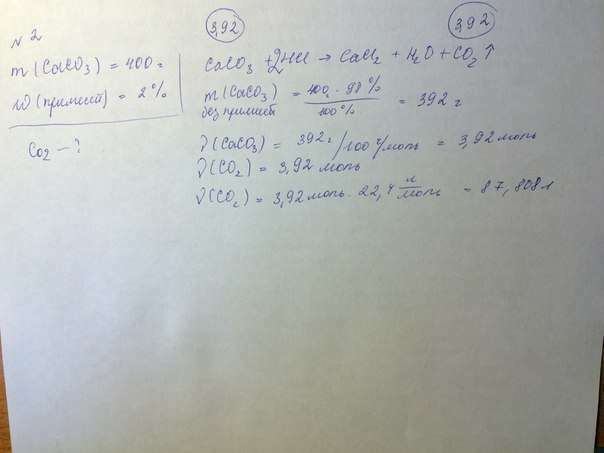 №2
m (CaCO3) = 400 г
W (примесей) = 2%
CO2 — ?
3,92
3,92
CaCO3 + 2HCl → CaCl2 + H2O + CO2↑
m (CaCO3) без примесей = 400 · 98% / 100% = 392 г
ν(CaCO3) = 392 г / 100 г/моль = 3,92 моль
ν(CO2) = 3,92 моль
ν(CO2) = 3,92 моль · 22,4 л/моль = 87,808 л